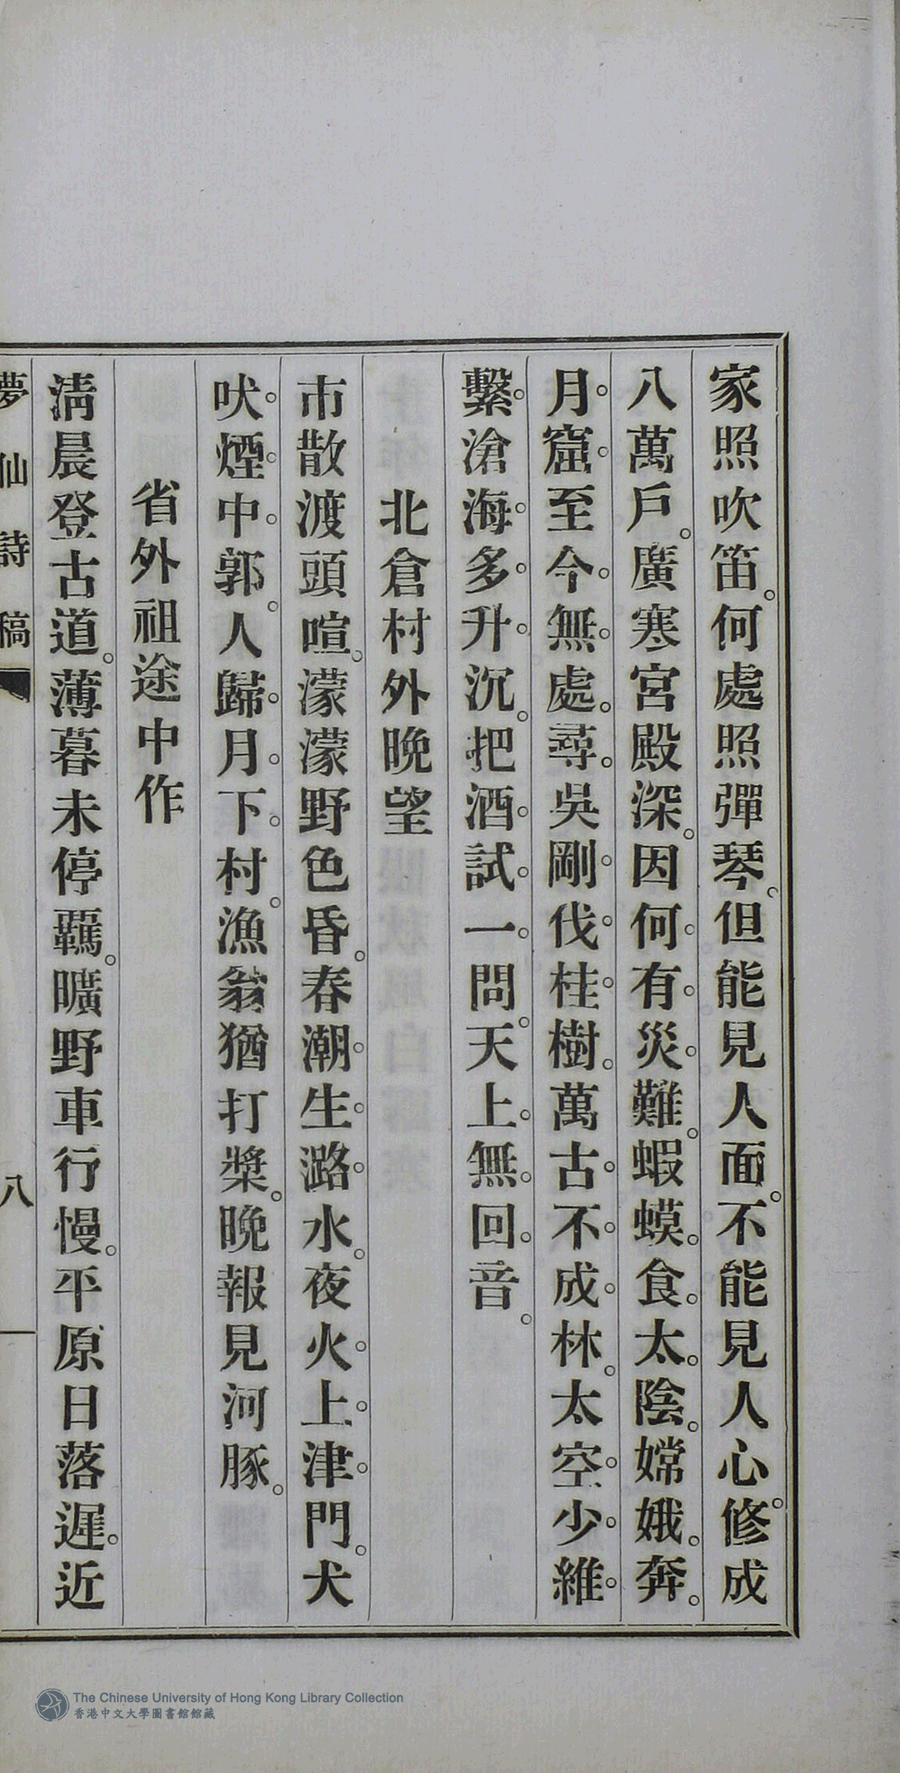 家照吹笛。何處照彈琴。但能見人面。不能見人心。修成
八萬戶。廣寒宮殿深。因何有災難。蝦蟆食太陰。嫦娥奔
月窟。至今無處尋。吳剛伐桂樹。萬古不成林。太空少維
繫。滄海多升沉。把酒試一問。天上無回音。
北倉村外晚望
市散渡頭喧。濛濛野色昏。春潮生潞水。夜火上津門。犬
吠煙中郭。人歸月下村。漁翁猶打槳。晚報見河豚。
省外祖途中作
淸晨登古道。薄暮未停羈。曠野車行慢。平原日落遲。近
夢仙詩稿
八
The Chinese University of Hong Kong Library Collection
香港中文大學圖書館館藏